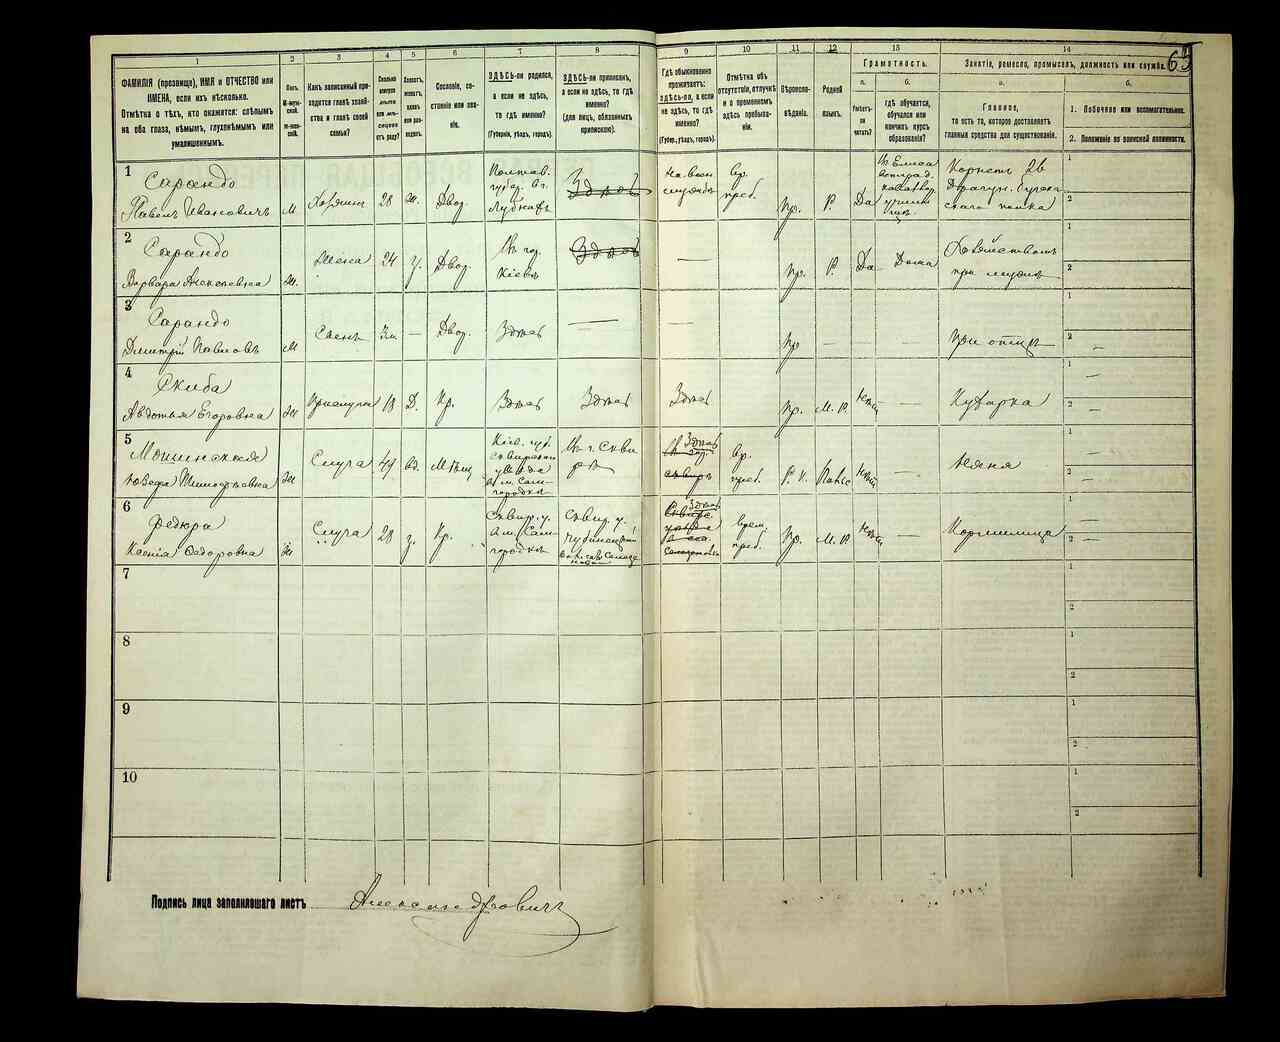 63
1 2 3 4 5 6 7 8 9 10 11 12 13 14
ФАМИЛІЯ (прозвище), ИМЯ и ОТЧЕСТВО или
ИМЕНА, если ихъ нѣсколько.
Отмѣтка о тѣхъ, кто окажется: слѣпымъ
на оба глаза, нѣмымъ, глухонѣмымъ или
умалишеннымъ.
Полъ.
М-муж-
ской.
Ж-жен-
скій.
Какъ записанный при-
ходится главѣ хозяй-
ства и главѣ своей
семьи?
Сколько
минуло
лѣтъ
или мѣ-
сяцевъ
отъ роду?
Холостъ,
женатъ,
вдовъ
или раз-
веденъ.
Сословіе, со-
стояніе или зва-
ніе.
ЗДѢСЬ-ли родился,
а если не здѣсь,
то гдѣ именно?
(Губернія, уѣздъ, городъ).
ЗДѢСЬ-ли приписанъ,
а если не здѣсь, то гдѣ
именно?
(для лицъ, обязанныхъ
припискою).
Гдѣ обыкновенно
проживаетъ:
здѣсь-ли, а если
не здѣсь, то гдѣ
именно?
(Губер., уѣздъ, городъ).
Отмѣтка объ
отсутствіи, отлучкѣ
и о временномъ
здѣсь пребыва-
ніи.
Вѣроиспо-
вѣданіе.
Родной
языкъ.
Грамотность.
а.
Умѣетъ-
ли
читать?
б.
гдѣ обучается,
обучался или
кончилъ курсъ
образованія?
Занятіе, ремесло, промыселъ, должность или служба.
а.
Главное,
то есть то, которое доставляетъ
главныя средства для существованія.
б.
1. Побочное или вспомогательное.
2. Положеніе по воинской повинности.
1
Сарандо
Павелъ Ивановичъ
М
Хозяинъ
28
ж.
Двор.
Полтав.
губер. въ г.
Лубнахъ
Здѣсь
На воен
службѣ
Вр.
преб.
Пр.
Р.
Да
Въ Елиса
ветград.
кавалер.
училищ
Корнетъ 26
Драгун. Бугска
го полка
1
2
2
Сарандо
Варвара Алексѣевна
Ж.
Жена
24
з.
Двор.
Въ гор.
Кіевѣ
Здѣсь
—
Пр.
Р.
Да
Дома
Хозяйствомъ
при мужѣ
1
2
3
Сарандо
Дмитрій Павловъ
М
Сынъ
3м
—
Двор.
Здѣсь
—
—
Пр
—
—
—
При отцѣ
1
2 —
4
Скиба
Авдотья Егоровна
Ж
Прислуга
18
Д.
Кр.
Здѣсь
Здѣсь
Здѣсь
Пр.
М. Р.
Нѣтъ
—
Кухарка
1 —
2 —
5
Мошинская
Юзефа
Ж
Слуга
49
вд.
Мѣщ
Кіев. губ.
Сквирскаго
уѣзда
в м. Сам-
городкѣ
Въ г. Скви
рѣ
Здѣсь
Въ гор.
Сквирѣ
Вр.
преб.
Р. К.
Польс
Нѣтъ
—
Няня
1
2 —
6
Федюра
Ксенія Федоровна
Ж
Слуга
28
з.
Кр.
Сквир. у.
в м. Сам-
городкѣ
Сквир. у.
Здѣсь
Врем.
преб.
Пр.
М. Р
Нѣтъ
—
Кормилица
1 —
2 —
7
1
2
8
1
2
9
1
2
10
1
2
Подпись лица заполнявшаго листъ
Александровичъ